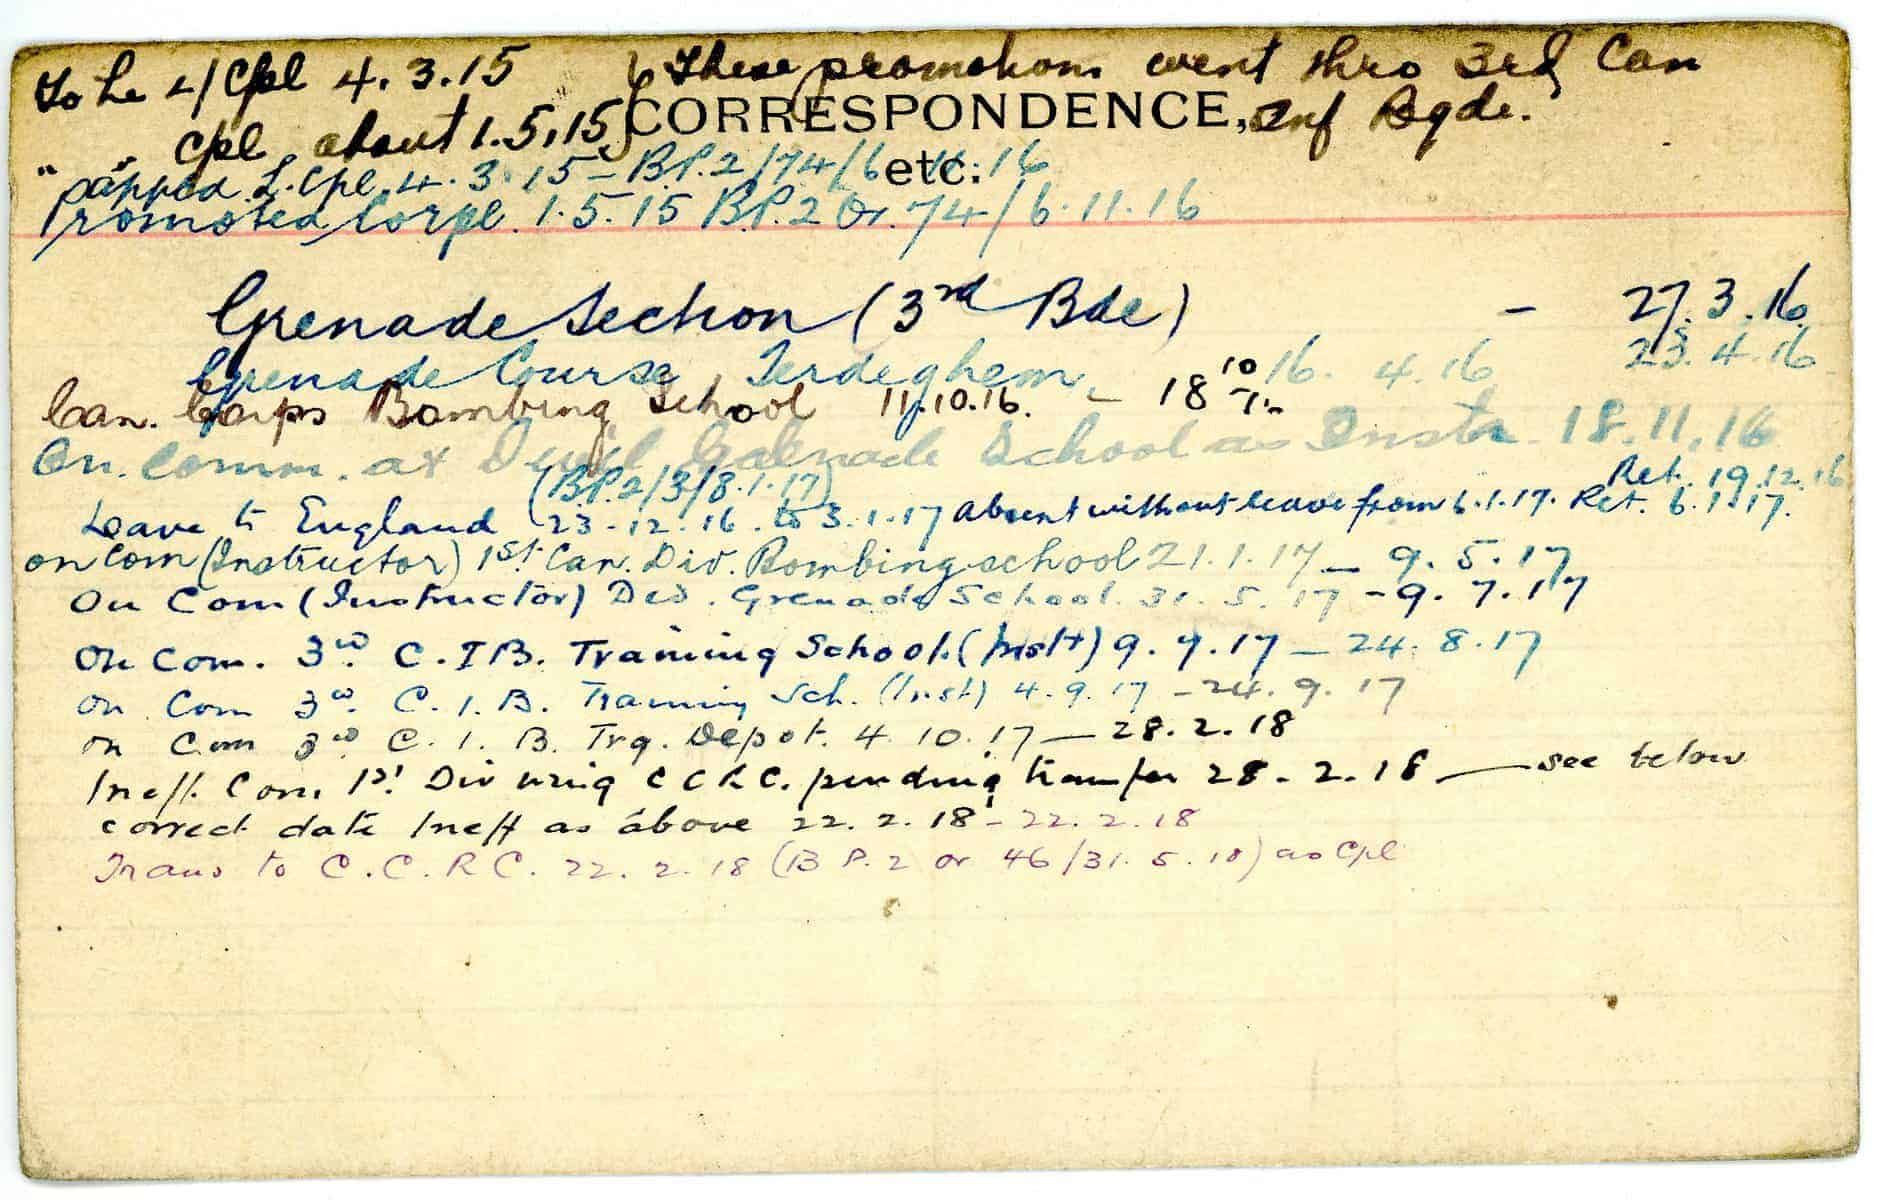 To be L/Cpl 4.3.15 } These promotions went thro 3rd Can
" " Cpl about 1.5.15 } CORRESPONDENCE, Inf Bgde.
etc.
appted L.Cpl. 4.3.15 - B.P.2/74/6.11.16
Promoted Corpl. 1.5.15 B.P.2 Or. 74/6.11.16
Grenade Section (3rd Bde) - 27.3.16.
Grenade Course, Terdeghem. 16.4.16 23.4.16
Can. Corps Bombing School 11.10.16. - 18 10/16
On. Comm. at Grenade School as Instr. 18.11.16
Ret. 19.12.16
(B.P.2/3/8.1.17)
Leave to England 23-12.16. to 3.1.17 Absent without leave from 6.1.17. Ret. 6.1.17.
on Com (Instructor) 1st. Can. Div. Bombing School 21.1.17 - 9.5.17
On Com (Instructor) Div. Grenade School. 31.5.17 - 9.7.17
On Com. 3rd. C.I.B. Training School. (Instr) 9.7.17 - 24.8.17
On Com 3rd. C.I.B. Training Sch. (Inst) 4.9.17 - 24.9.17
on Com 3rd C.I.B. Trg. Depot. 4.10.17 - 28.2.18
Ineff. Com. 1st Div wing C C R C. pending transfer 28-2.18 - see below
correct date Ineff as above 22.2.18 - 22.2.18
Trans to C.C.R.C. 22.2.18 (B P.2 or 46/31.5.18) as Cpl